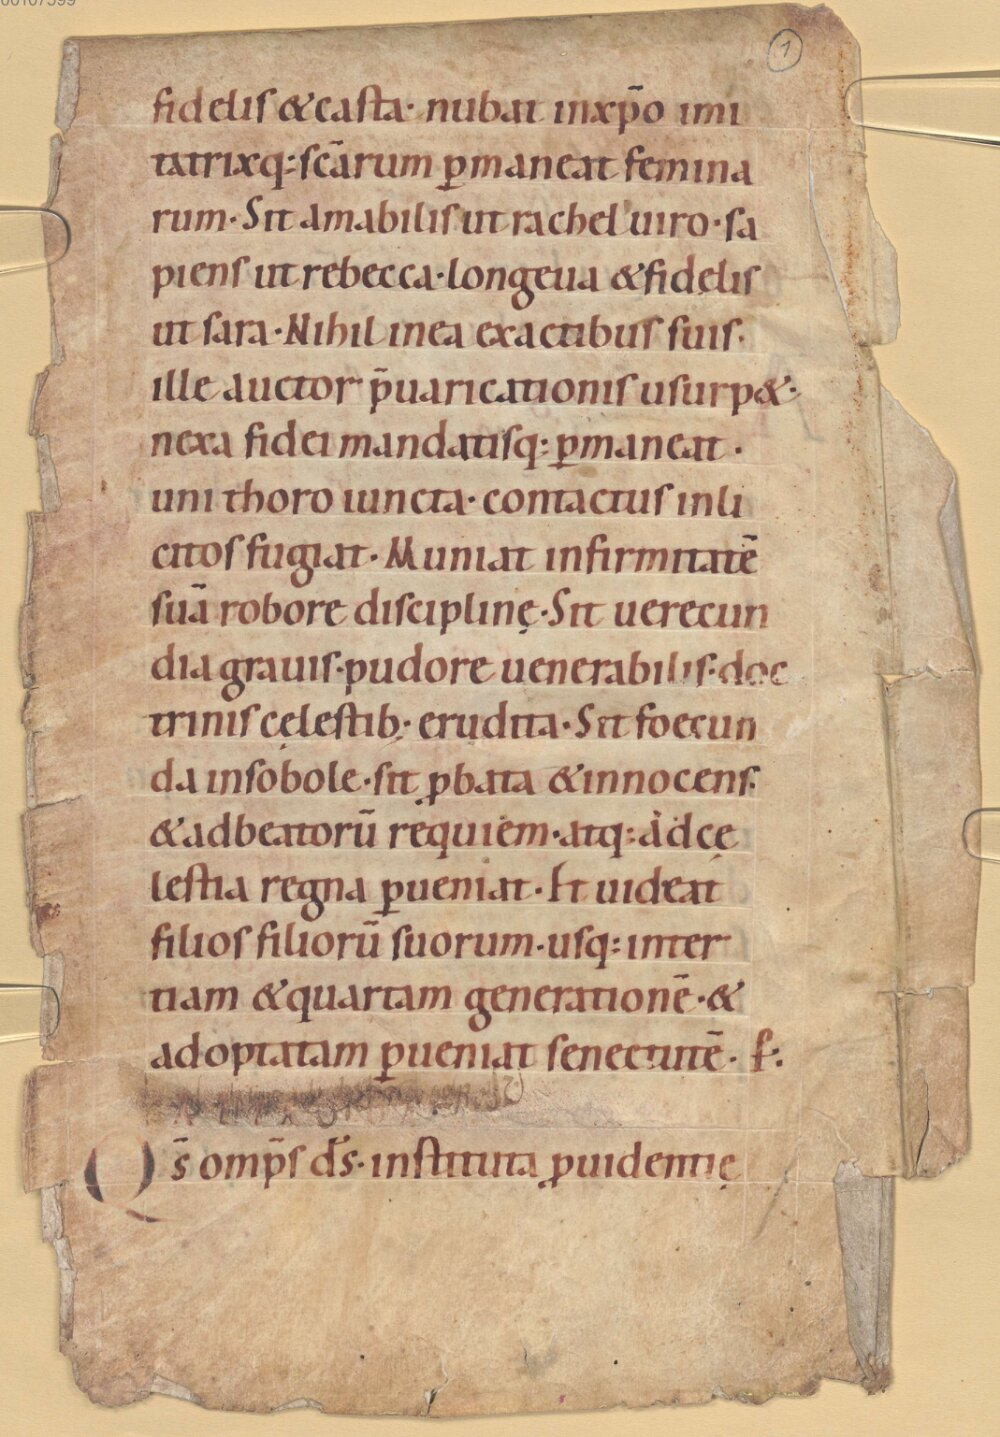 00107399
1
fidelis & casta· nubat inxp̄o imi
tatrixq: sc̄arum ꝑmaneat femina
rum· Sit amabilis ut rachel uiro· sa
piens ut rebecca· longeua & fidelis
ut sara· Nihil inea exactibus suis·
ille auctor p̄uaricationis usurp&·
nexa fidei mandatisq: ꝑmaneat·
uni thoro iuncta· contactus inli
citos fugiat· Muniat infirmitatē
suā robore disciplinę· Sit uerecun
dia grauis· pudore uenerabilis· doc
trinis cęlestib; erudita· Sit foecun
da insobole· sit ꝓbata & innocens·
& adbeatorū requiem· atq: àdcę
lestia regna ꝑueniat· Et uideat
filios filiorū suorum· usq: inter
tiam & quartam generationē· &
adoptatam ꝑueniat senectutē· ꝑ:
Qs̄ omp̄s d̄s· instituta ꝓuidentię